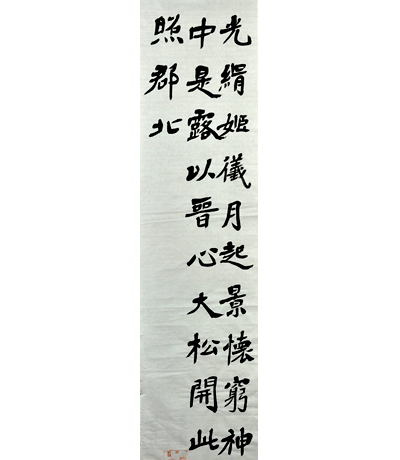 光絹姬儀月起景懷窮神
中是露以晉心大松開此
照郡北